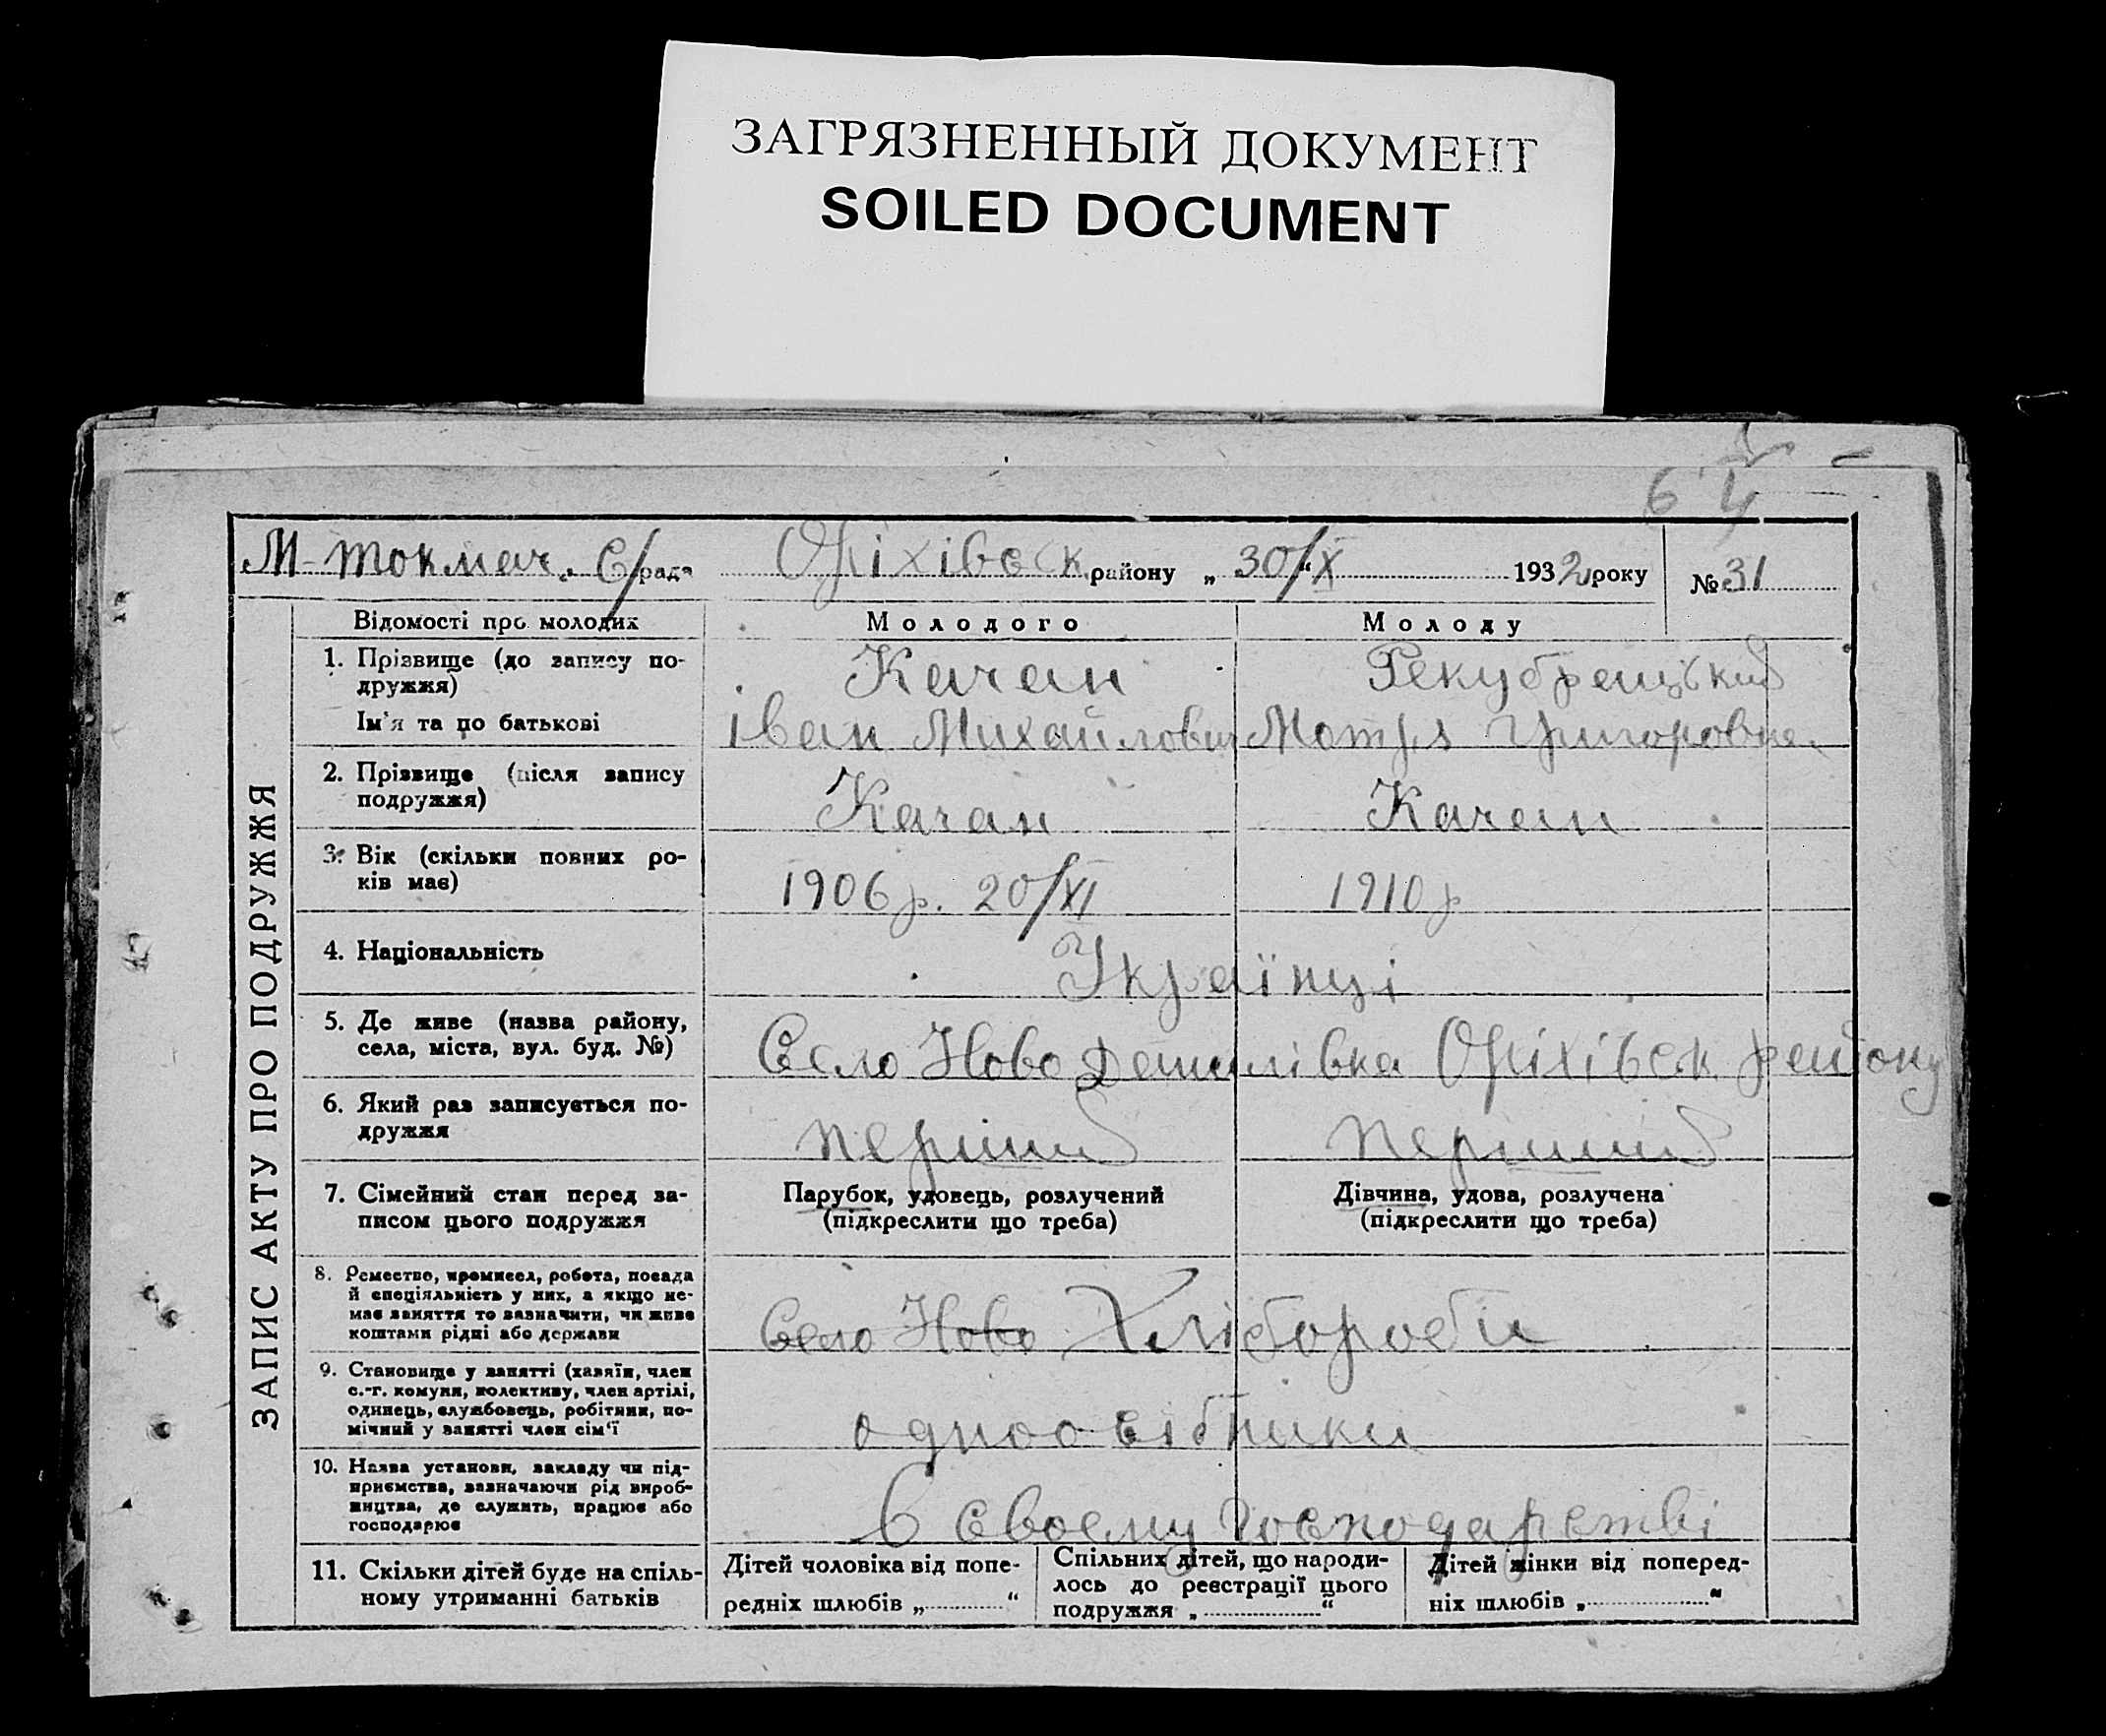 ЗАГРЯЗНЕННЫЙ ДОКУМЕНТ
SOILED DOCUMENT
6 4
М-токмач. С/рада Оріхівськ району „ 30/X “ 1932 року № 31
ЗАПИС АКТУ ПРО ПОДРУЖЖЯ
Відомості про молодих Молодого Молоду
1. Прізвище (до запису по-
дружжя) Качан
Ім'я та по батькові Іван Михайлович Мотря Григоровна
2. Прізвище (після запису
подружжя) Качан Качан
3. Вік (скільки повних ро-
ків має) 1906 р. 20/XI 1910 р
4. Національність Українці
5. Де живе (назва району,
села, міста, вул. буд. №) Село Ново Данилівка Оріхівськ району
6. Який раз записується по-
дружжя перший перший
7. Сімейний стан перед за- Парубок, удовець, розлучений Дівчина, удова, розлучена
писом цього подружжя (підкреслити що треба) (підкреслити що треба)
8. Ремество, промисел, робота, посада
й спеціяльність у них, а якщо не-
має заняття то зазначити, чи живе
коштами рідні або держави Село Ново Хлібороби
9. Становище у занятті (хазяїн, член
с.-г. комуни, колективу, член артілі,
одинець, службовець, робітник, по-
мічний у занятті член сім'ї одноосібники
10. Назва установи, закладу чи під-
приємства, зазначаючи рід вироб-
ництва, де служить, працює або
господарює В своему господарстві
11. Скільки дітей буде на спіль-
ному утриманні батьків
Дітей чоловіка від попе-
редніх шлюбів „ “
Спільних дітей, що народи-
лось до реєстрації цього
подружжя „ “
Дітей жінки від поперед-
ніх шлюбів „ “